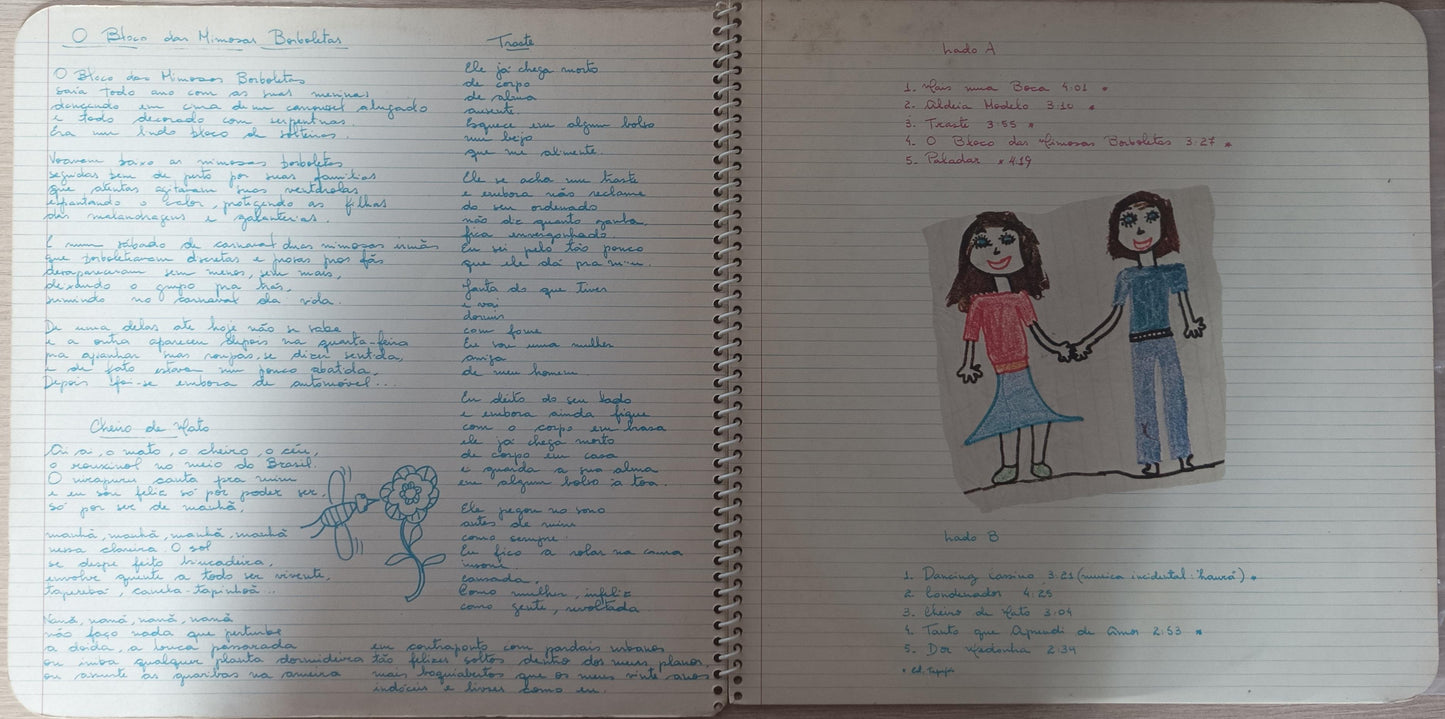 O Bloco das Mimosas Borboletas
O Bloco das Mimosas Borboletas
saia todo ano com as suas meninas
dançando em cima dum caminhão alugado
e todo decorado com serpentinas.
Era um lindo bloco de solteiras.
Voavam baixo as mimosas borboletas
seguidas bem de perto por suas famílias
que atentas agitavam suas ventarolas
espantando o calor, protegendo as filhas
das malandragens e galanterias.
E num sábado de carnaval duas mimosas irmãs
que borboleteavam discretas e prosas pros fãs
desapareceram sem menos, sem mais,
deixando o grupo pra trás,
sumindo no carnaval da vida.
De uma delas até hoje não se sabe
e a outra apareceu depois na quarta-feira
pra apanhar mas roupas, se dizer sentida,
e de fato estava um pouco abatida.
Depois foi-se embora de automóvel...
Cheiro de Mato
Ai ai, o mato, o cheiro, o céu,
o rouxinol no meio do Brasil.
O uirapuru canta pra mim
e eu sou feliz só por poder ser,
só por ser de manhã,
manhã, manhã, manhã, manhã
nessa clareira o sol
se despe feito brincadeira,
envolve quente a todo ser vivente,
taperebá, canela-tapinhoã...
Nanã, nanã, nanã, nanã
não faço nada que perturbe
a doida, a louca passarada
ou iniba qualquer planta dormideira
ou assuste as guaribas na aroeira
em contraponto com pardais urbanos
tão felizes soltos dentro dos meus planos,
mais boquiabertos que os meus vinte anos
indóceis e livres como eu.
Traste
Ele já chega morto
de corpo
de alma
ausente.
Esquece em algum bolso
um beijo
que me alimente.
Ele se acha um traste
e embora não reclame
do seu ordenado
não diz quanto ganha,
fica envergonhado.
Eu sei pelo tão pouco
que ele dá pra mim.
Janta do que tiver
e vai
dormir
com fome
Eu sou uma mulher
amiga
de meu homem.
Eu deito do seu lado
e embora ainda fique
com o corpo em brasa
ele já chega morto
de corpo em casa
e guarda a sua alma
em algum bolso à toa.
Ele pegou no sono
antes de mim
como sempre.
Eu fico a rolar na cama
insone.
cansada,
Como mulher, infeliz
como gente, revoltada.
Lado A
1. Mais uma Boca 4:01 *
2. Aldeia Modelo 3:10 *
3. Traste 3:55 *
4. O Bloco das Mimosas Borboletas 3:27 *
5. Pakadar * 4:19
Lado B
1. Dancing Cassino 3:21 (musica incidental: "haurá") *
2. Condenados 4:25
3. Cheiro de Mato 3:04
4. Tanto que Aprendi de Amor 2:53 *
5. Dor Medonha 2:34
* ed. Tapajós